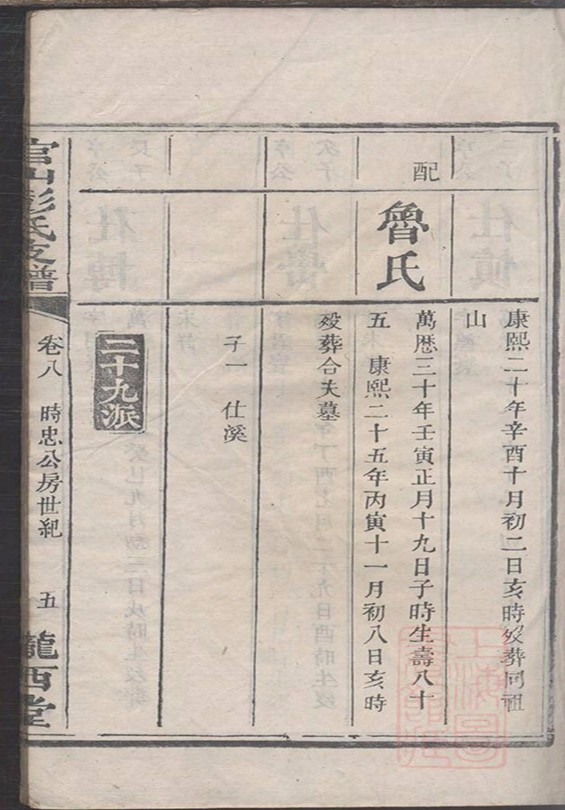 康熙二十年辛酉十月初二日亥時歿葬同祖
山
配
魯氏
萬歷三十年壬寅正月十九日子時生壽八十
五 康熙二十五年丙寅十一月初八日亥時
歿葬合夫墓
子一 仕溪
二十九派
官山彭氏支譜
卷八 時忠公房世紀 五
隴西堂